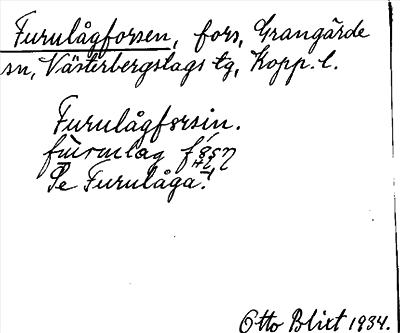 Furulågforsen, fors, Grangärde
sn, Västerbergslags tg, Kopp. l.
Furulågforsin.
Se Furulåga!
Otto Blixt 1934.